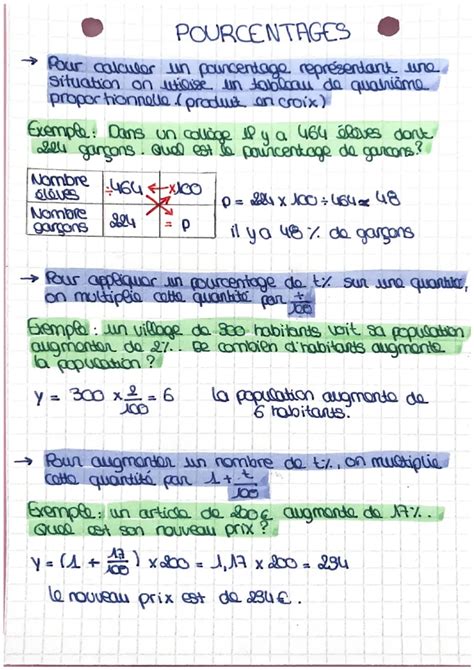 POURCENTAGES
→ Pour calculer un pourcentage représentant une
situation on utilise un tableau de quatrième
proportionnelle (produit en croix)
Exemple : Dans un collège il y a 464 élèves dont
224 garçons. Quel est le pourcentage de garçons ?
Nombre élèves ÷464 ×100
Nombre garçons 224 = p
p = 224 × 100 ÷ 464 ≈ 48
il y a 48 % de garçons
→ Pour appliquer un pourcentage de t% sur une quantité,
on multiplie cette quantité par t/100
Exemple : un village de 300 habitants voit sa population
augmenter de 2%. De combien d'habitants augmente
la population ?
y = 300 × 2/100 = 6 la population augmente de
6 habitants.
→ Pour augmenter un nombre de t%, on multiplie
cette quantité par 1 + t/100
Exemple : un article de 200€ augmente de 17%.
Quel est son nouveau prix ?
y = (1 + 17/100) × 200 = 1,17 × 200 = 234
le nouveau prix est de 234€.